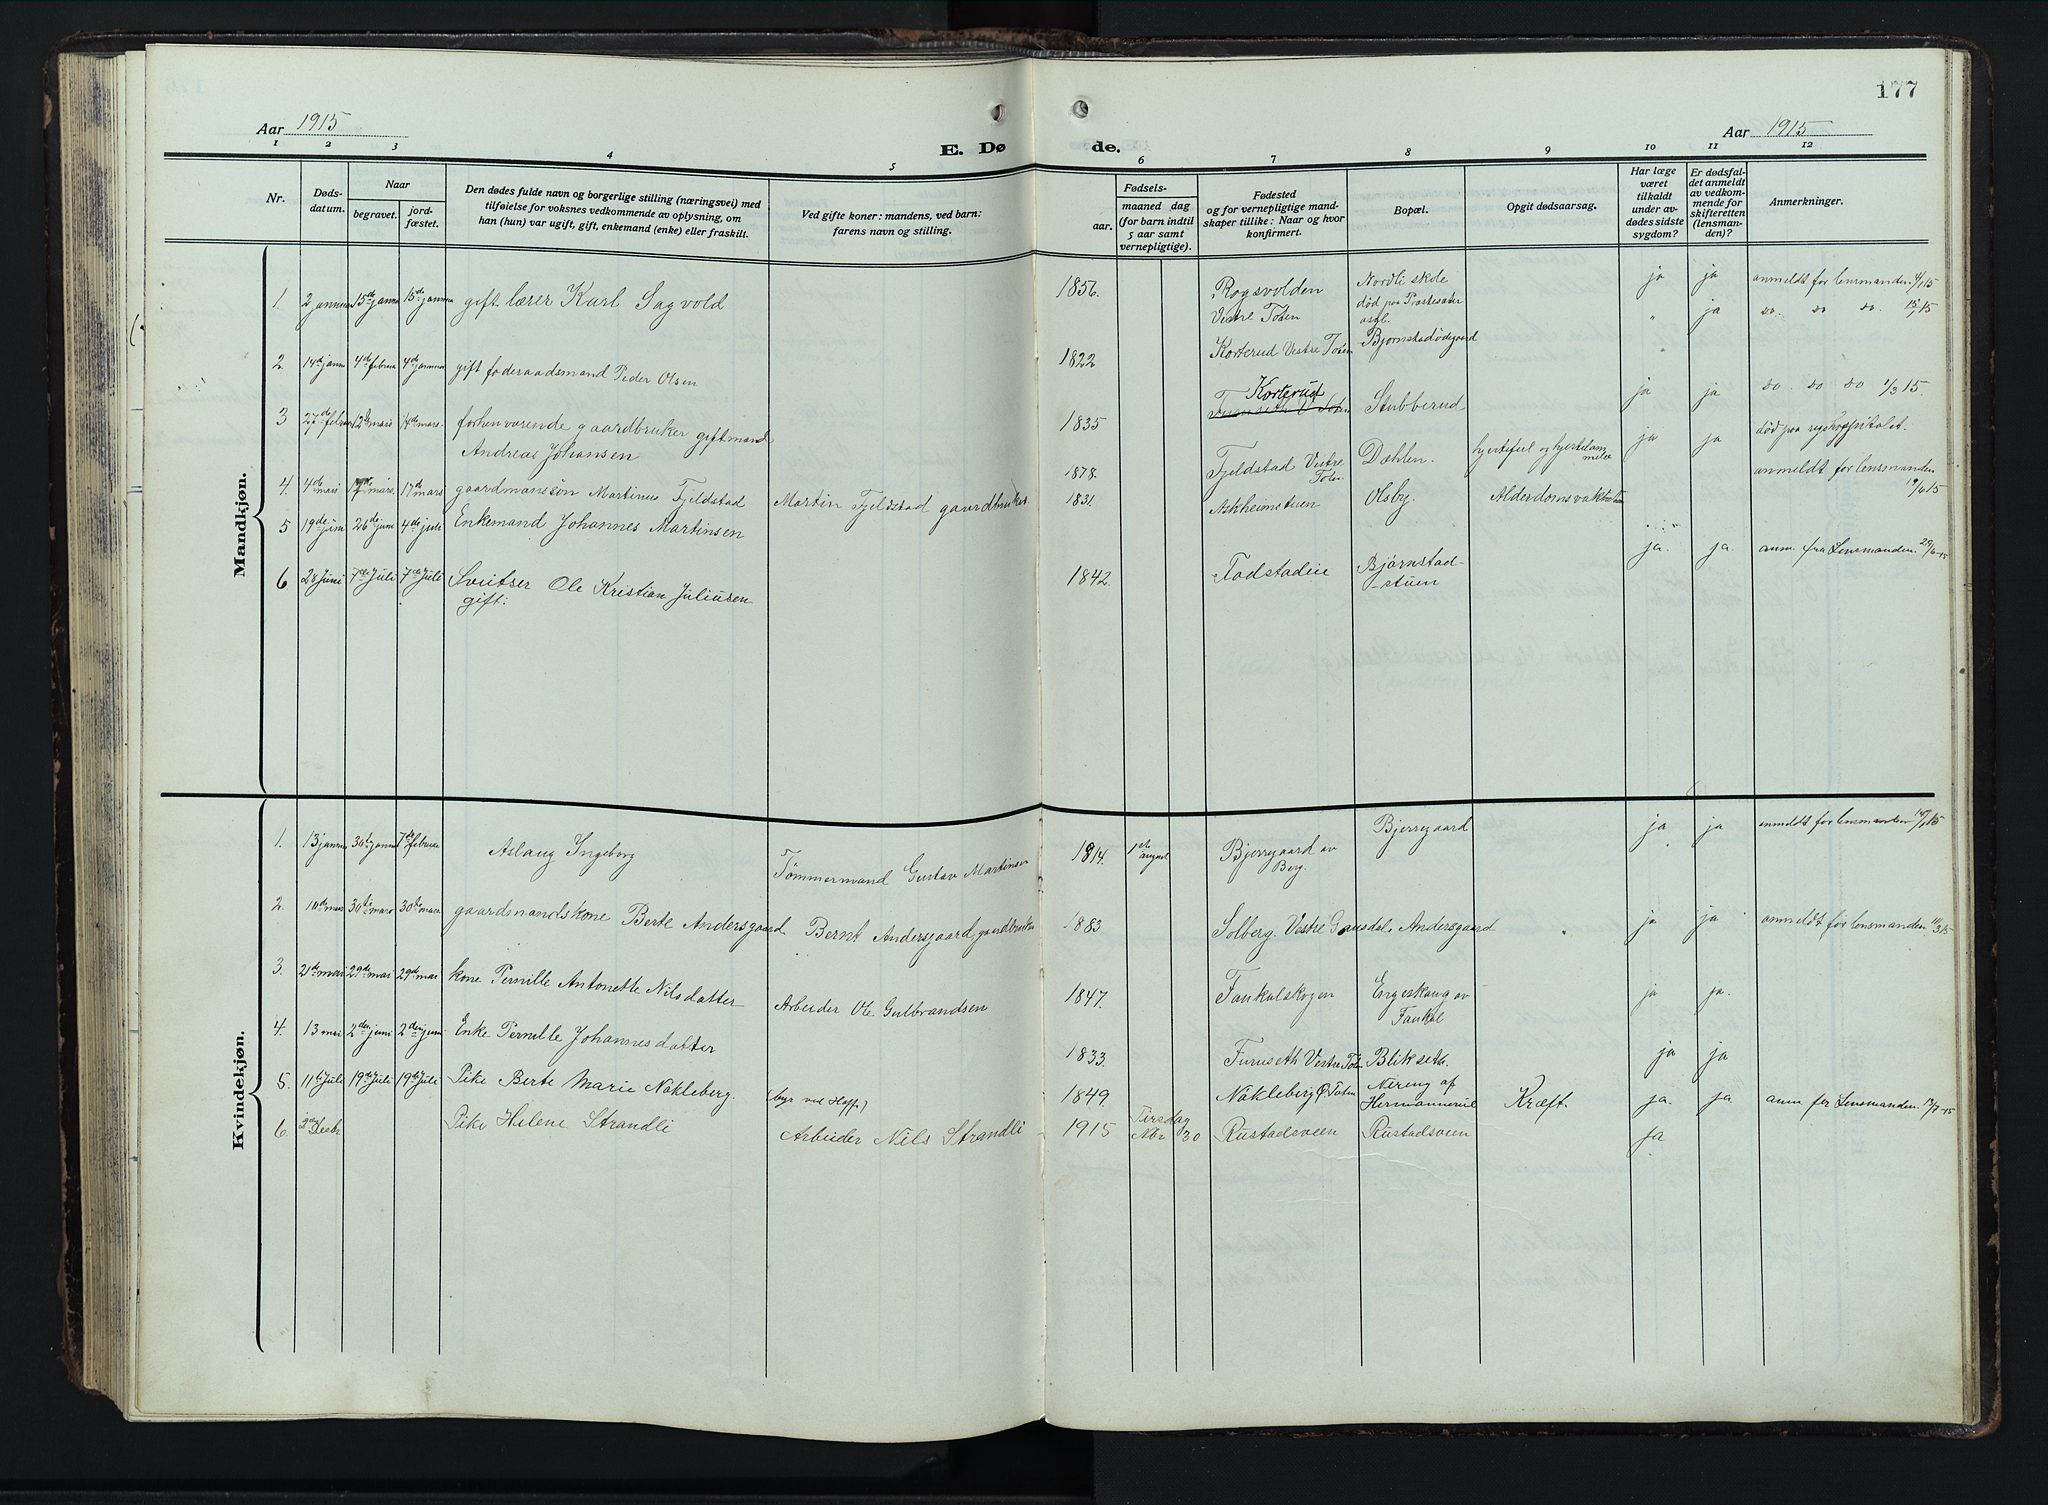 177
Aar 1915
E. Dø de.
Aar 1915
1 2 3 4 5 6 7 8 9 10 11 12
Nr.
Døds-
datum.
Naar
begravet.
jord-
fæstet.
Den dødes fulde navn og borgerlige stilling (næringsvei) med
tilføielse for voksnes vedkommende av oplysning, om
han (hun) var ugift, gift, enkemand (enke) eller fraskilt.
Ved gifte koner: mandens, ved barn:
farens navn og stilling.
Fødsels-
aar.
maaned dag
(for barn indtil
5 aar samt
vernepligtige).
Fødested
og for vernepligtige mand-
skaper tillike: Naar og hvor
konfirmert.
Bopæl.
Opgit dødsaarsag.
Har læge
været
tilkaldt
under av-
dødes sidste
sygdom?
Er dødsfal-
det anmeldt
av vedkom-
mende for
skifteretten
(lensman-
den)?
Anmerkninger.
Mandkjøn.
1. 2 januar 15de janu 15de januar gift lærer Karl Sagvold 1856. Rogsvolden Nordli skole ja ja anmeldt for lensmanden 4/1 15
Vestre Toten død paa Præstesæter
asyl.
2. 14de janu 4de februa 4de januar gift føderaadsmand Peder Olsen 1822 Korterud Vestre Toten Bjørnstadødegaard " ja do. do. do. 15/1 15
3 27de febru 12te mars 14de mars forhenværende gaardbruker gift mand 1835 Korterud Stubberud ja ja do do do 1/3 15.
Andreas Johansen Furuseth V Toten
4. 4de mars 17de mars 17de mars gaardmanssøn Martinus Fjeldstad Martin Fjeldstad gaardbruker 1878. Fjeldstad Vestre Dæhlen. hjertefeil og hjertelam ja ja død paa rigshospitalet.
Toten melse
5 19de juni 26de juni 4de juli Enkemand Johannes Martinsen 1831. Askheimstuen Olsby. Alderdomssvakhet anmeldt for lensmanden
19/6 15
6 28 Juni 7de Juli 7de Juli Sveitser Ole Kristian Juliusen 1842. Todstadeie Bjørnstad- ja. ja. anm. fra Lensmanden. 29/6-15
gift. -stuen
Kvindekjøn.
1. 13 januar 30te janu 7de februa Aslaug Ingeborg Tømmermand Gustav Martinsen 1914. 1ste august Bjerregaard av Bjerregaard ja ja anmeldt for lensmanden 15
Berg.
2. 10de mars 30te mars 30te mars gaardmandskone Berte Andersgaard Bernt Andersgaard gaardbruker 1883 Solberg. Vestre Gausdal. Andersgaard ja ja anmeldt for lensmanden. 15
3. 21de mai 29de mai 29de mai kone Pernille Antonette Nilsdatter Arbeider Ole Gulbrandsen 1847. Faukalskogen Engeskaug av ja ja.
Faukal
4. 13 mai 2den juni 2den juni Enke Pernille Johannesdatter 1833 Furuseth Vestre Toten Blikseth. ja ja
5. 11te Juli 19de Juli 19de Juli Pike Berte Marie Nøkleberg. (byr ved Hoff.) 1849. Nøkleberg Ø. Toten Nereng af Kræft. ja. ja anm for Lensmanden. 12/7-15
Hermannerud
6. Decbr Pike Helene Strandli Arbeider Nils Strandli 1915 Tirsdag Rustadsveen Rustadsveen ja
Nbr 30